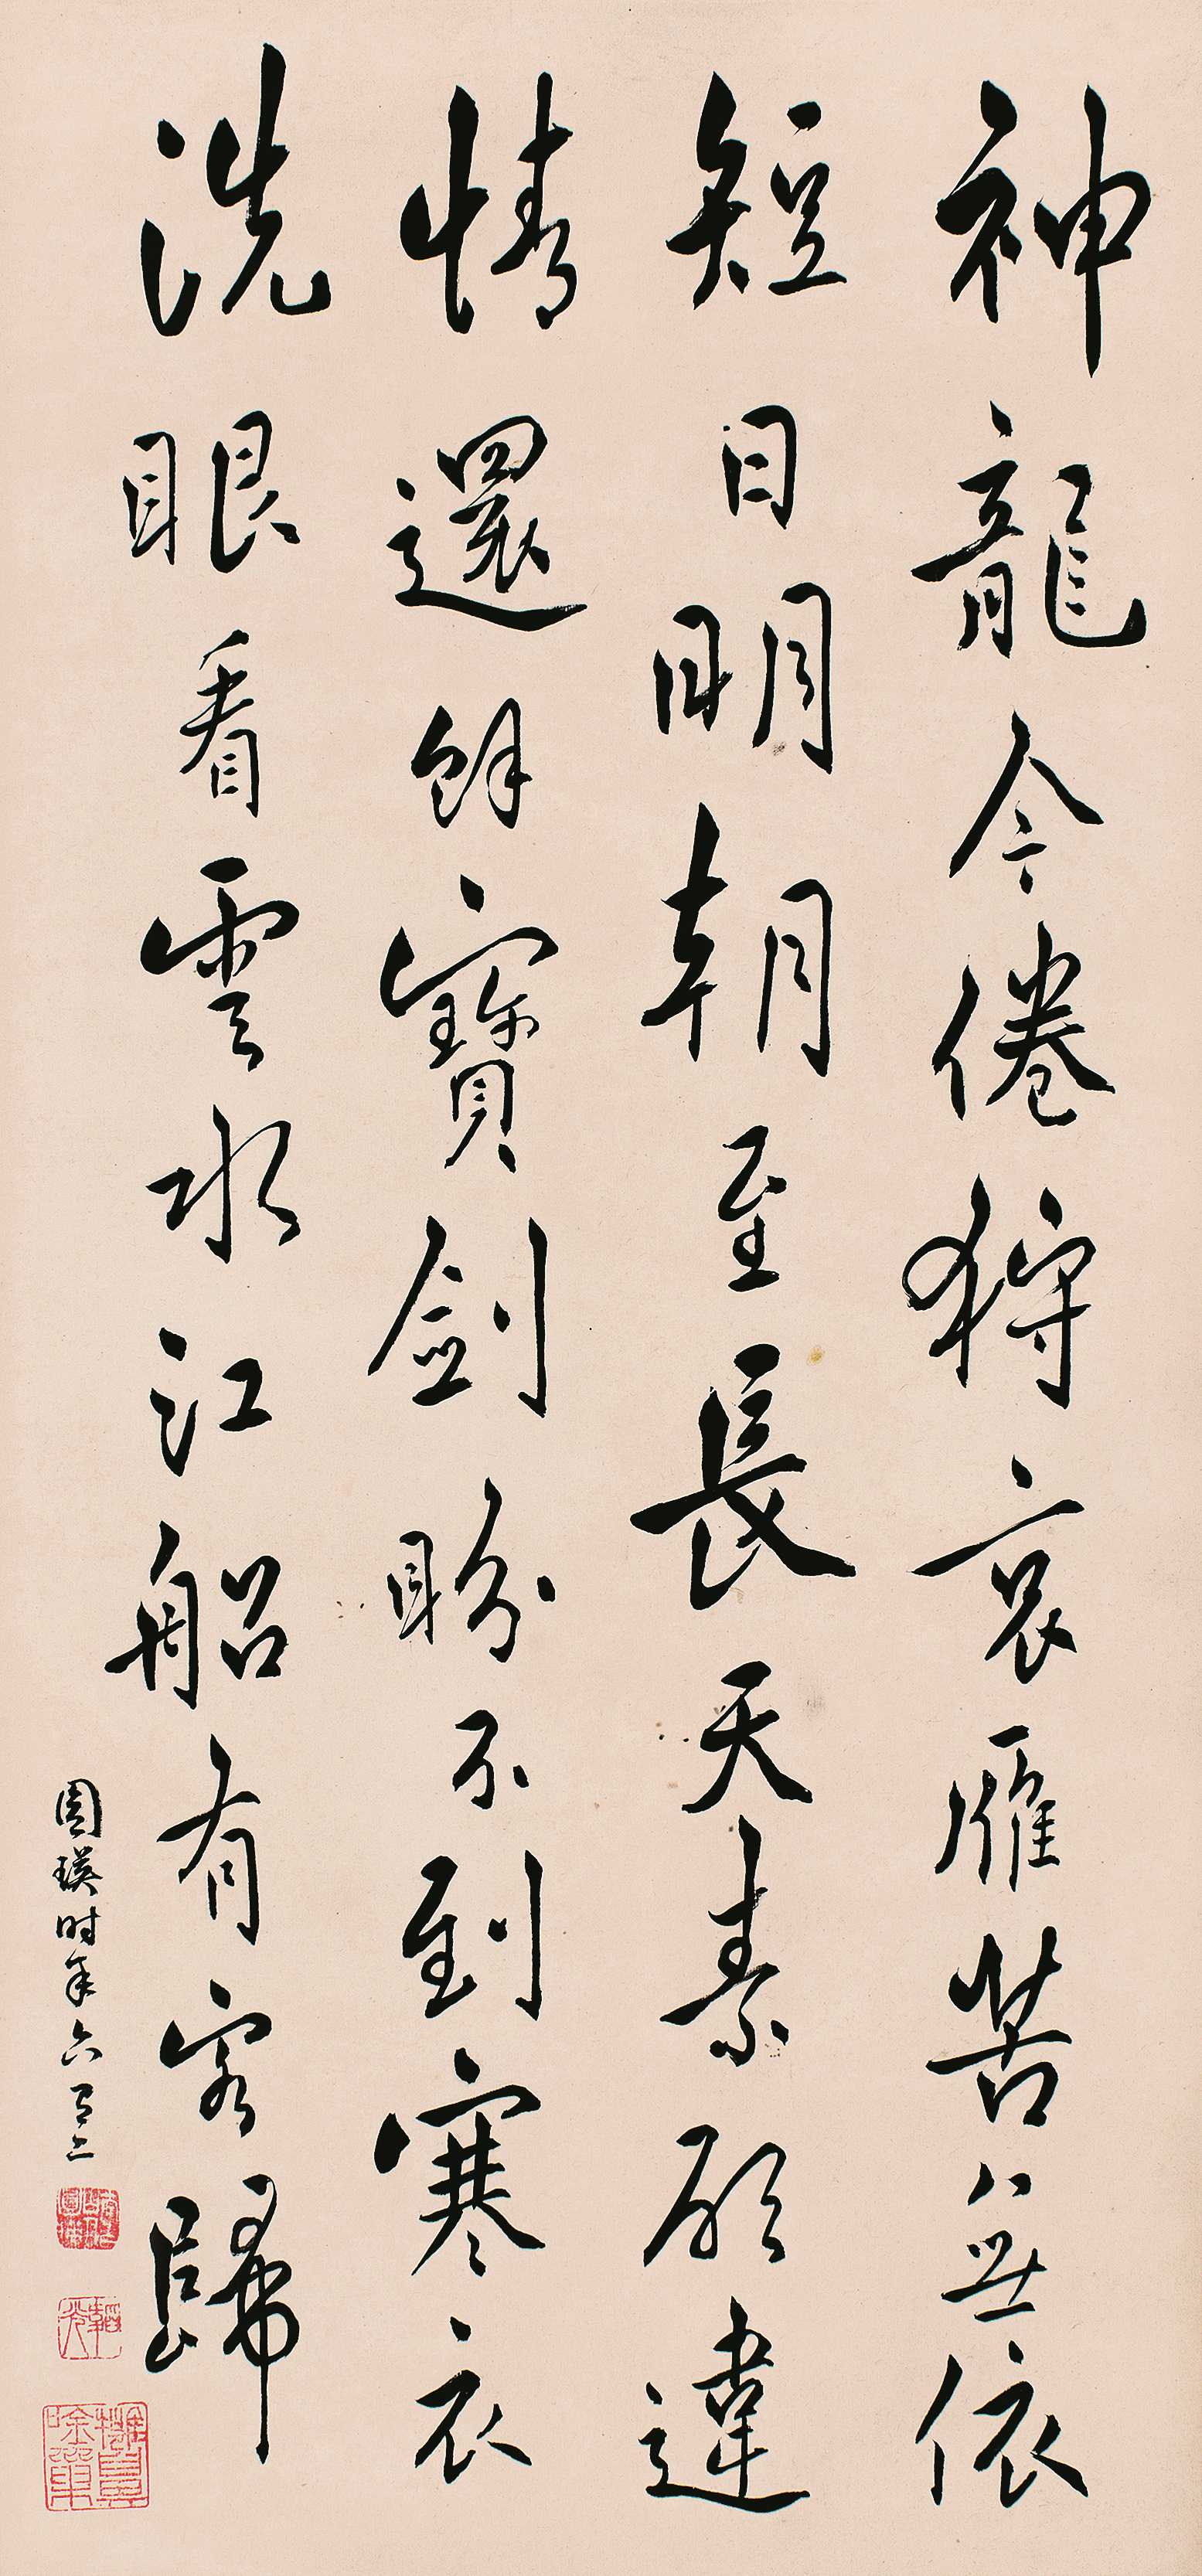 神龍今倦狩哀雁苦無依
短日明朝至長天素願違
情還餘寶劍盼不到寒衣
洗眼看雲水江船有客歸
瑛时年六有二